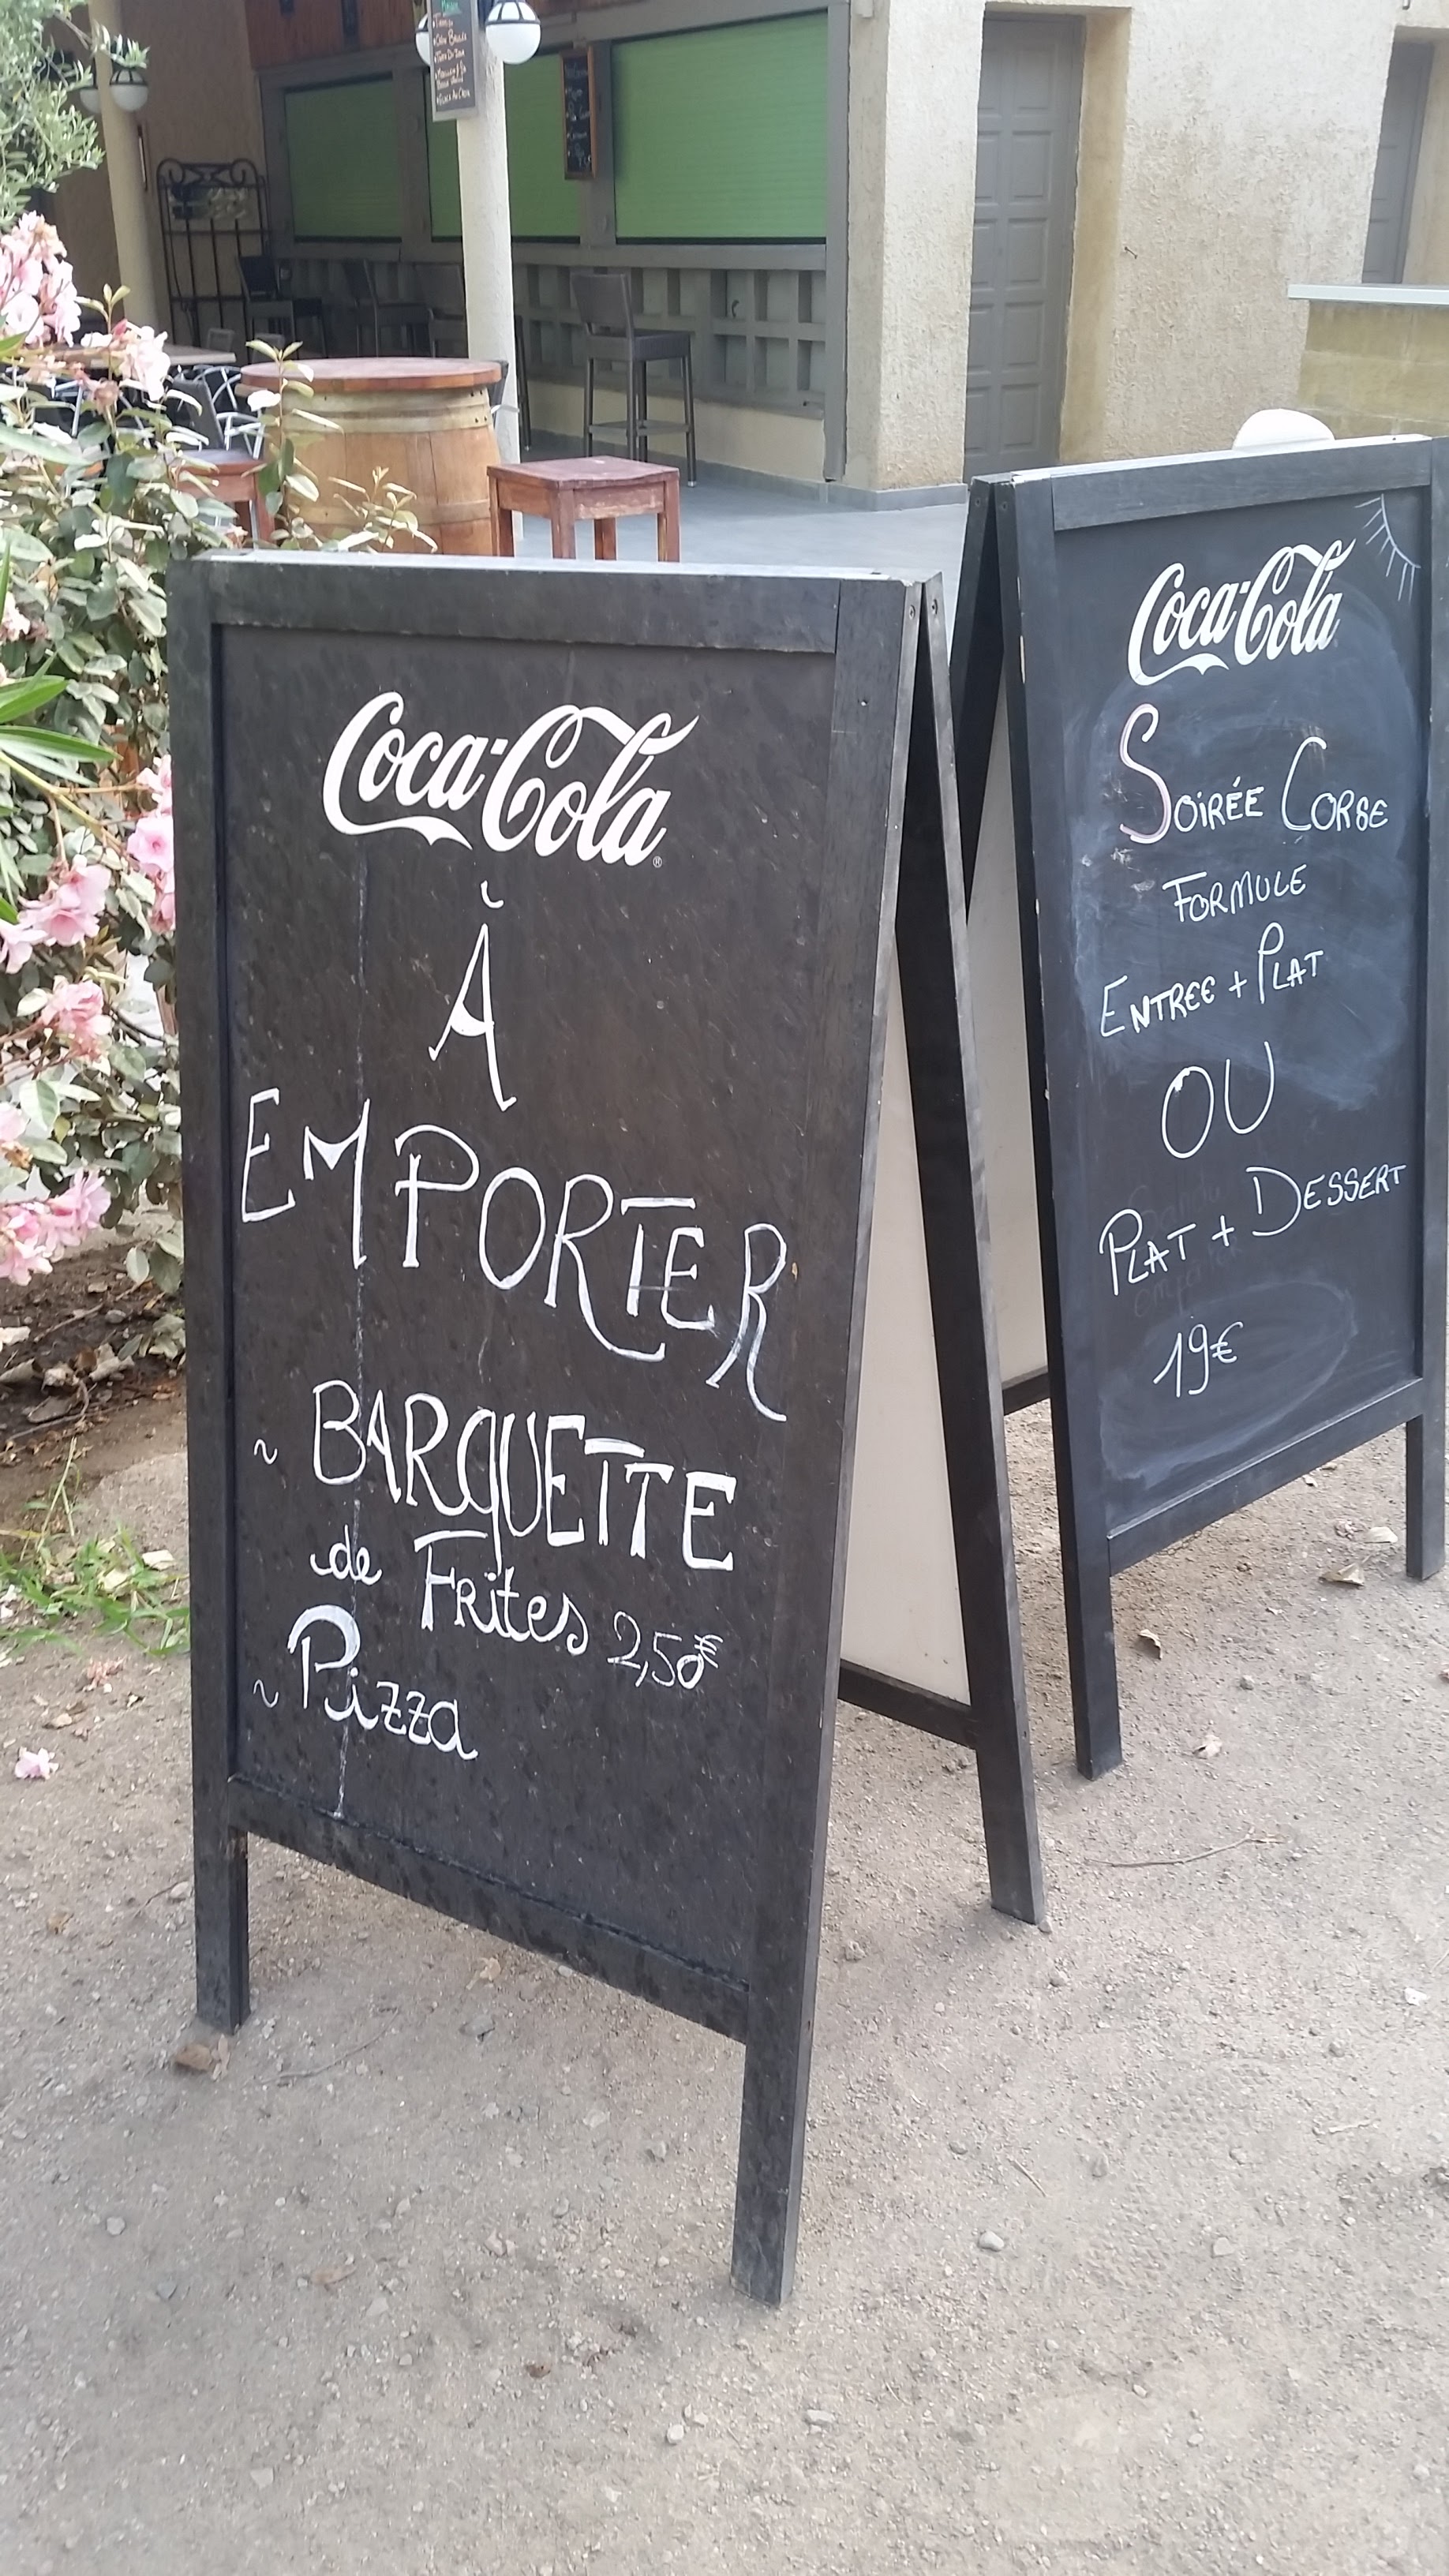 Coca-Cola
À
EMPORTER
~ BARQUETTE
de Frites 2,50€
~ Pizza
Coca-Cola
SOIRÉE CORSE
FORMULE
ENTREE + PLAT
OU
PLAT + DESSERT
19€